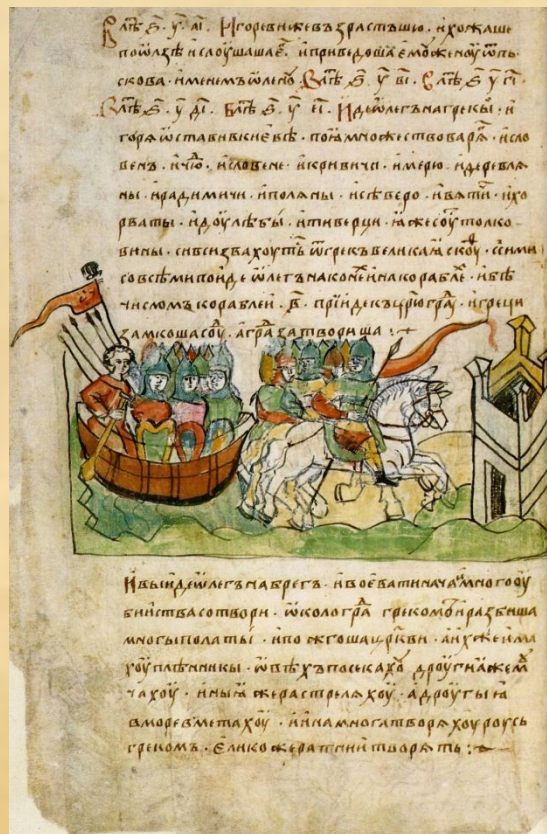 В лѣт҃ ҂ѕ҃ . у҃ . аı҃ . Игоревижевъзрастъшю . ихожаше
поѡлзѣ ислоушашаеⷢ . иприведошаемоуженоуѿпь
скова . именемъѡленоу . В лѣт҃ ҂ѕ҃ . у҃ вı҃ . В лѣт҃ ҂ѕ҃ . у҃ гı҃
В лѣт҃ ҂ѕ҃ . у҃ дı҃ . В лѣт҃ ҂ѕ҃ . у҃ еı҃ . Идеѡлегънагрекы . и
горѧѡставивкиевѣ . поıамножествоварѧⷢ . исло
венъ . ичюⷣ . исловене . икривичи . имерю . идеревлѧ
ны . ирадимичи . иполѧны . исѣверо . ивѧтичи . ихо
рваты . идоулѣбы . итиверци . ıажесоутолко
вины . сивсизвахоутьⷭ ѿгрекъвеликаıаскоуⷴ . ссими
совсѣмипоидеѡлегънаконеⷯинакораблеⷯ . ибѣ
числомъкораблеи . в҃ . прıидекъцр҃югра . игреци
замкошасоуⷣ . аграⷣзатвориша :
Ивыидеѡлегънабрегъ . ивоеватинача . имногооу
биıствасотвори . ѡколограⷣ грекомъ . иразбиша
многыполаты . ипожгошацр҃кви . аиⷯжеима
хоуплѣнникы . ѡвѣхъпосекахоу . дроугиıажемоу
чахоу . иныıажерастрелѧхоу . адроугыıа
вморевметахоу . иинамноготворѧхоуроусь
грекомъ . еликожератнıитворѧть :